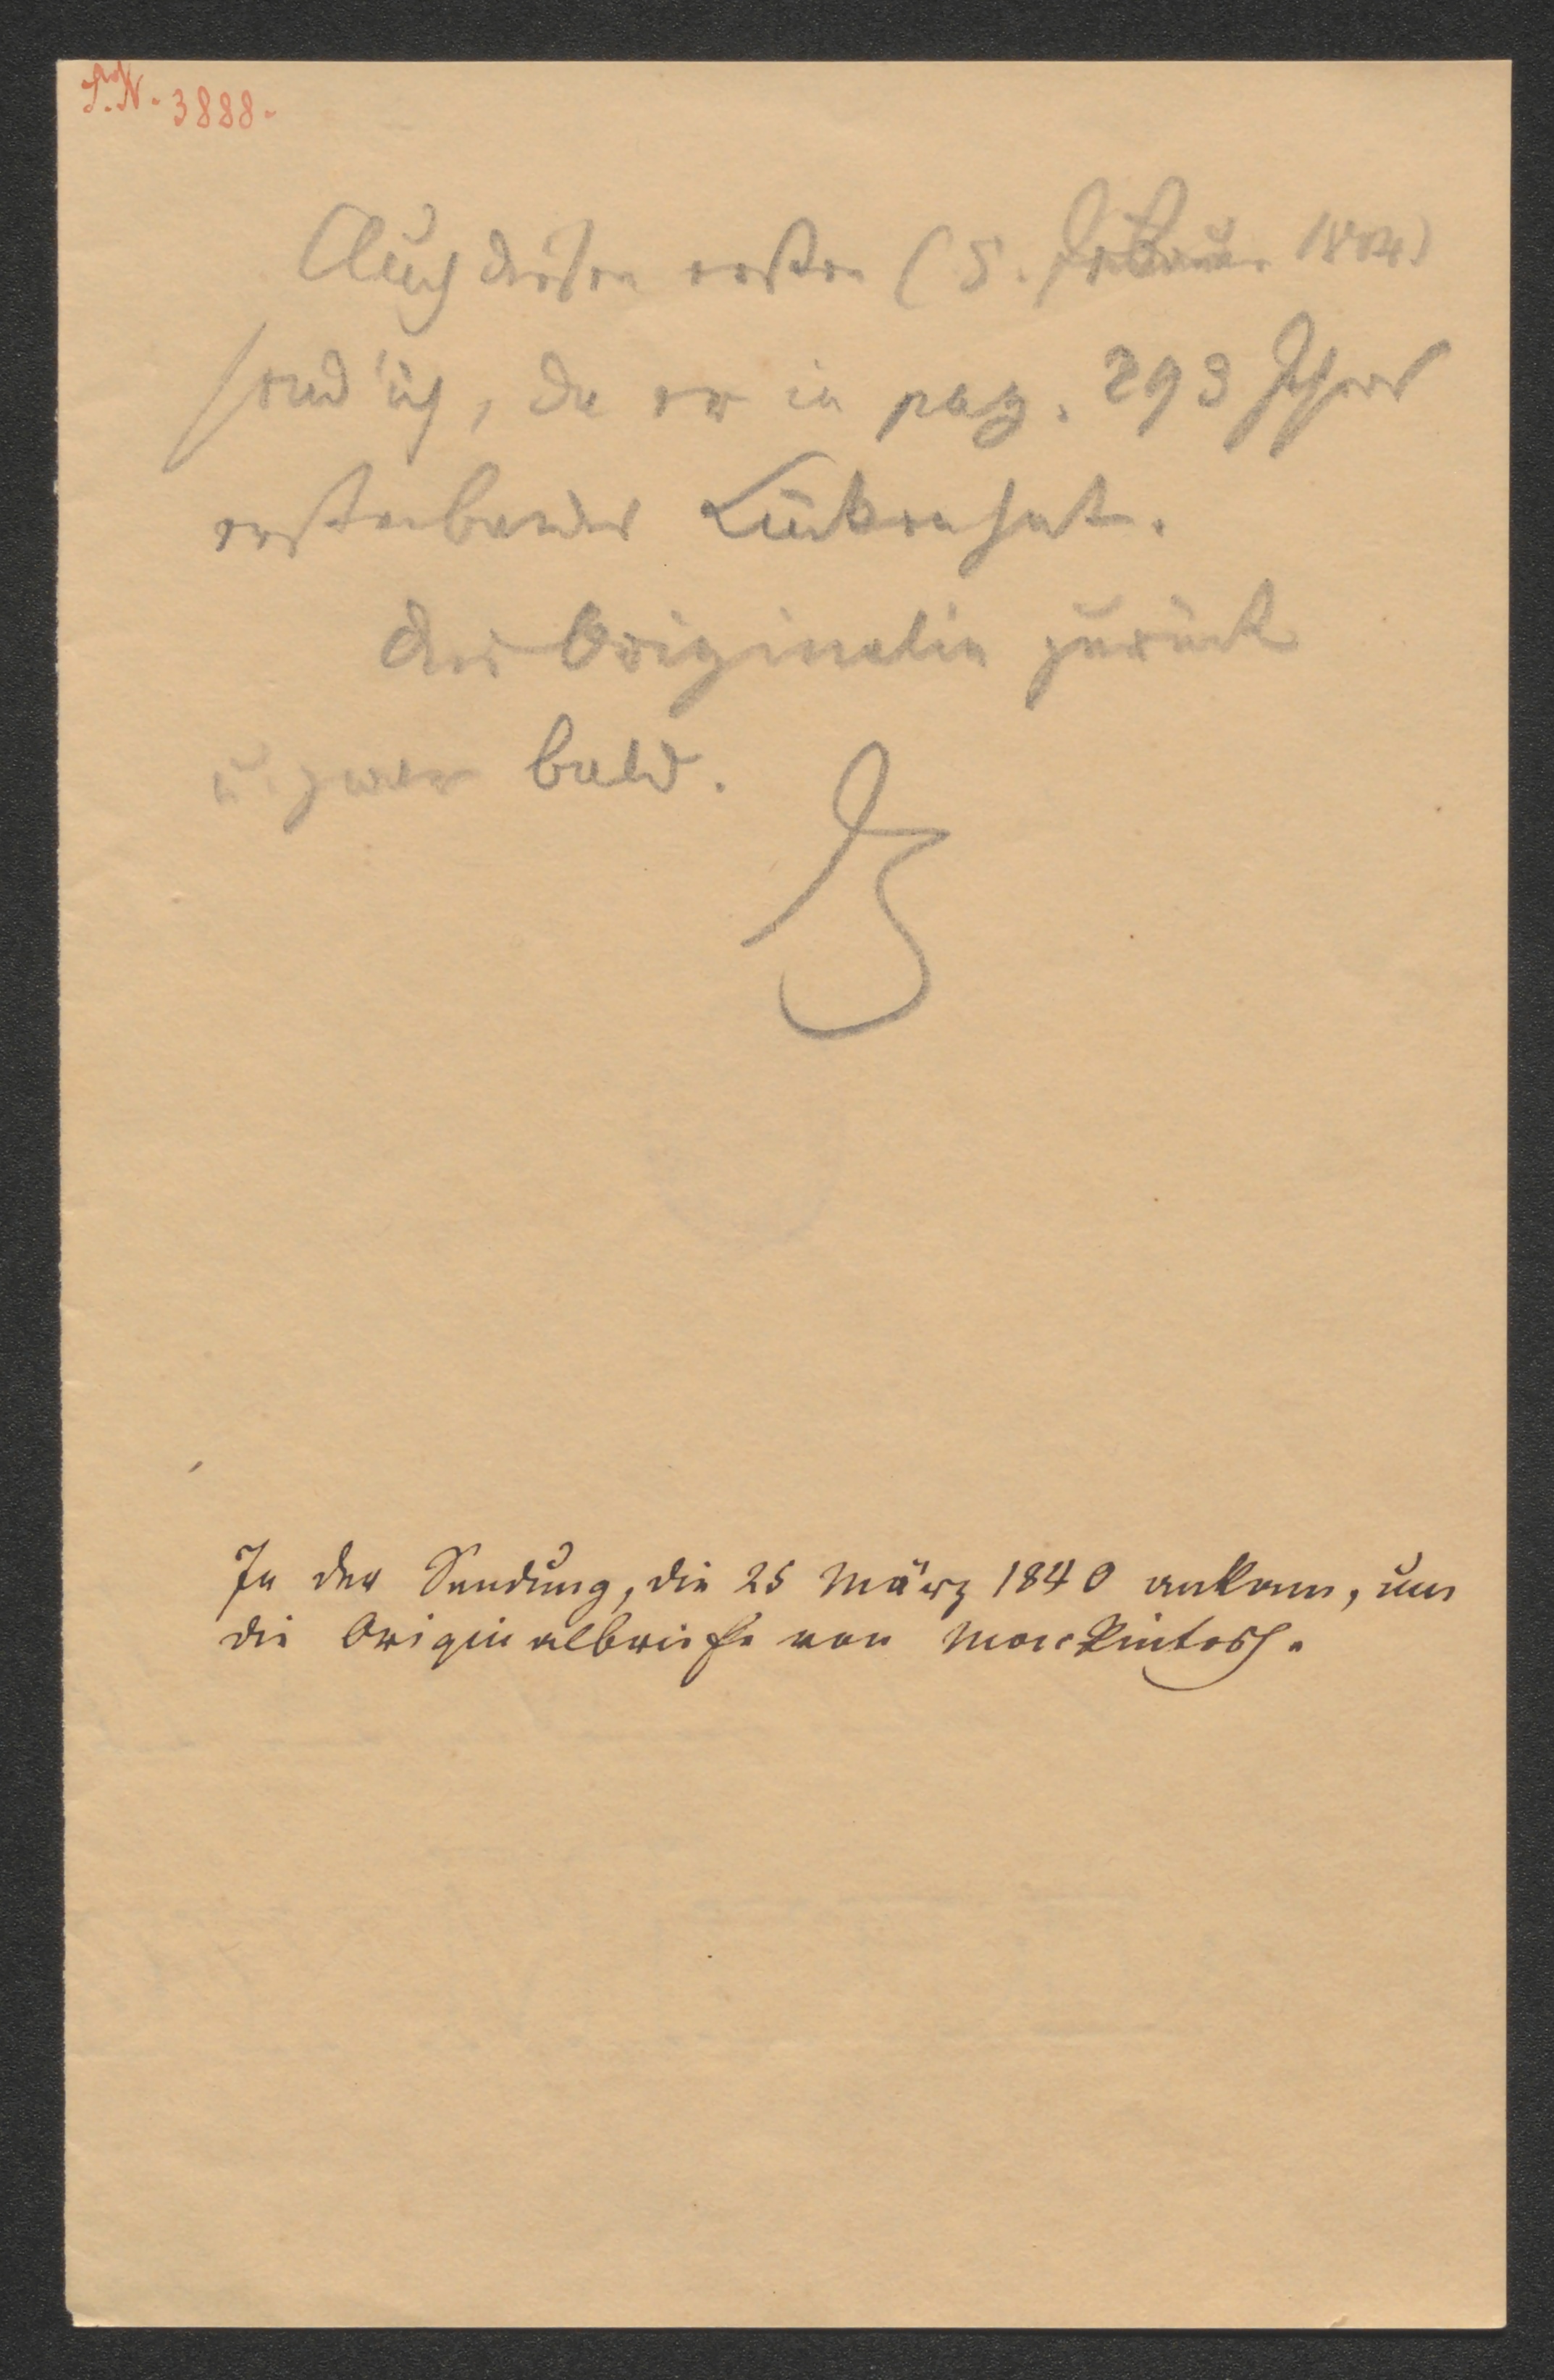 I.N. 3888.
Auch diesen ersten (5. Februar 1804)
send' ich, da er in pag. 293 Ihres
ersten Bandes Lücken hat.
Die Originalien zurück
u. zwar bald.
In der Sendung, die 25 März 1840 ankam, nur
die Originalbriefe von Mackintosh.